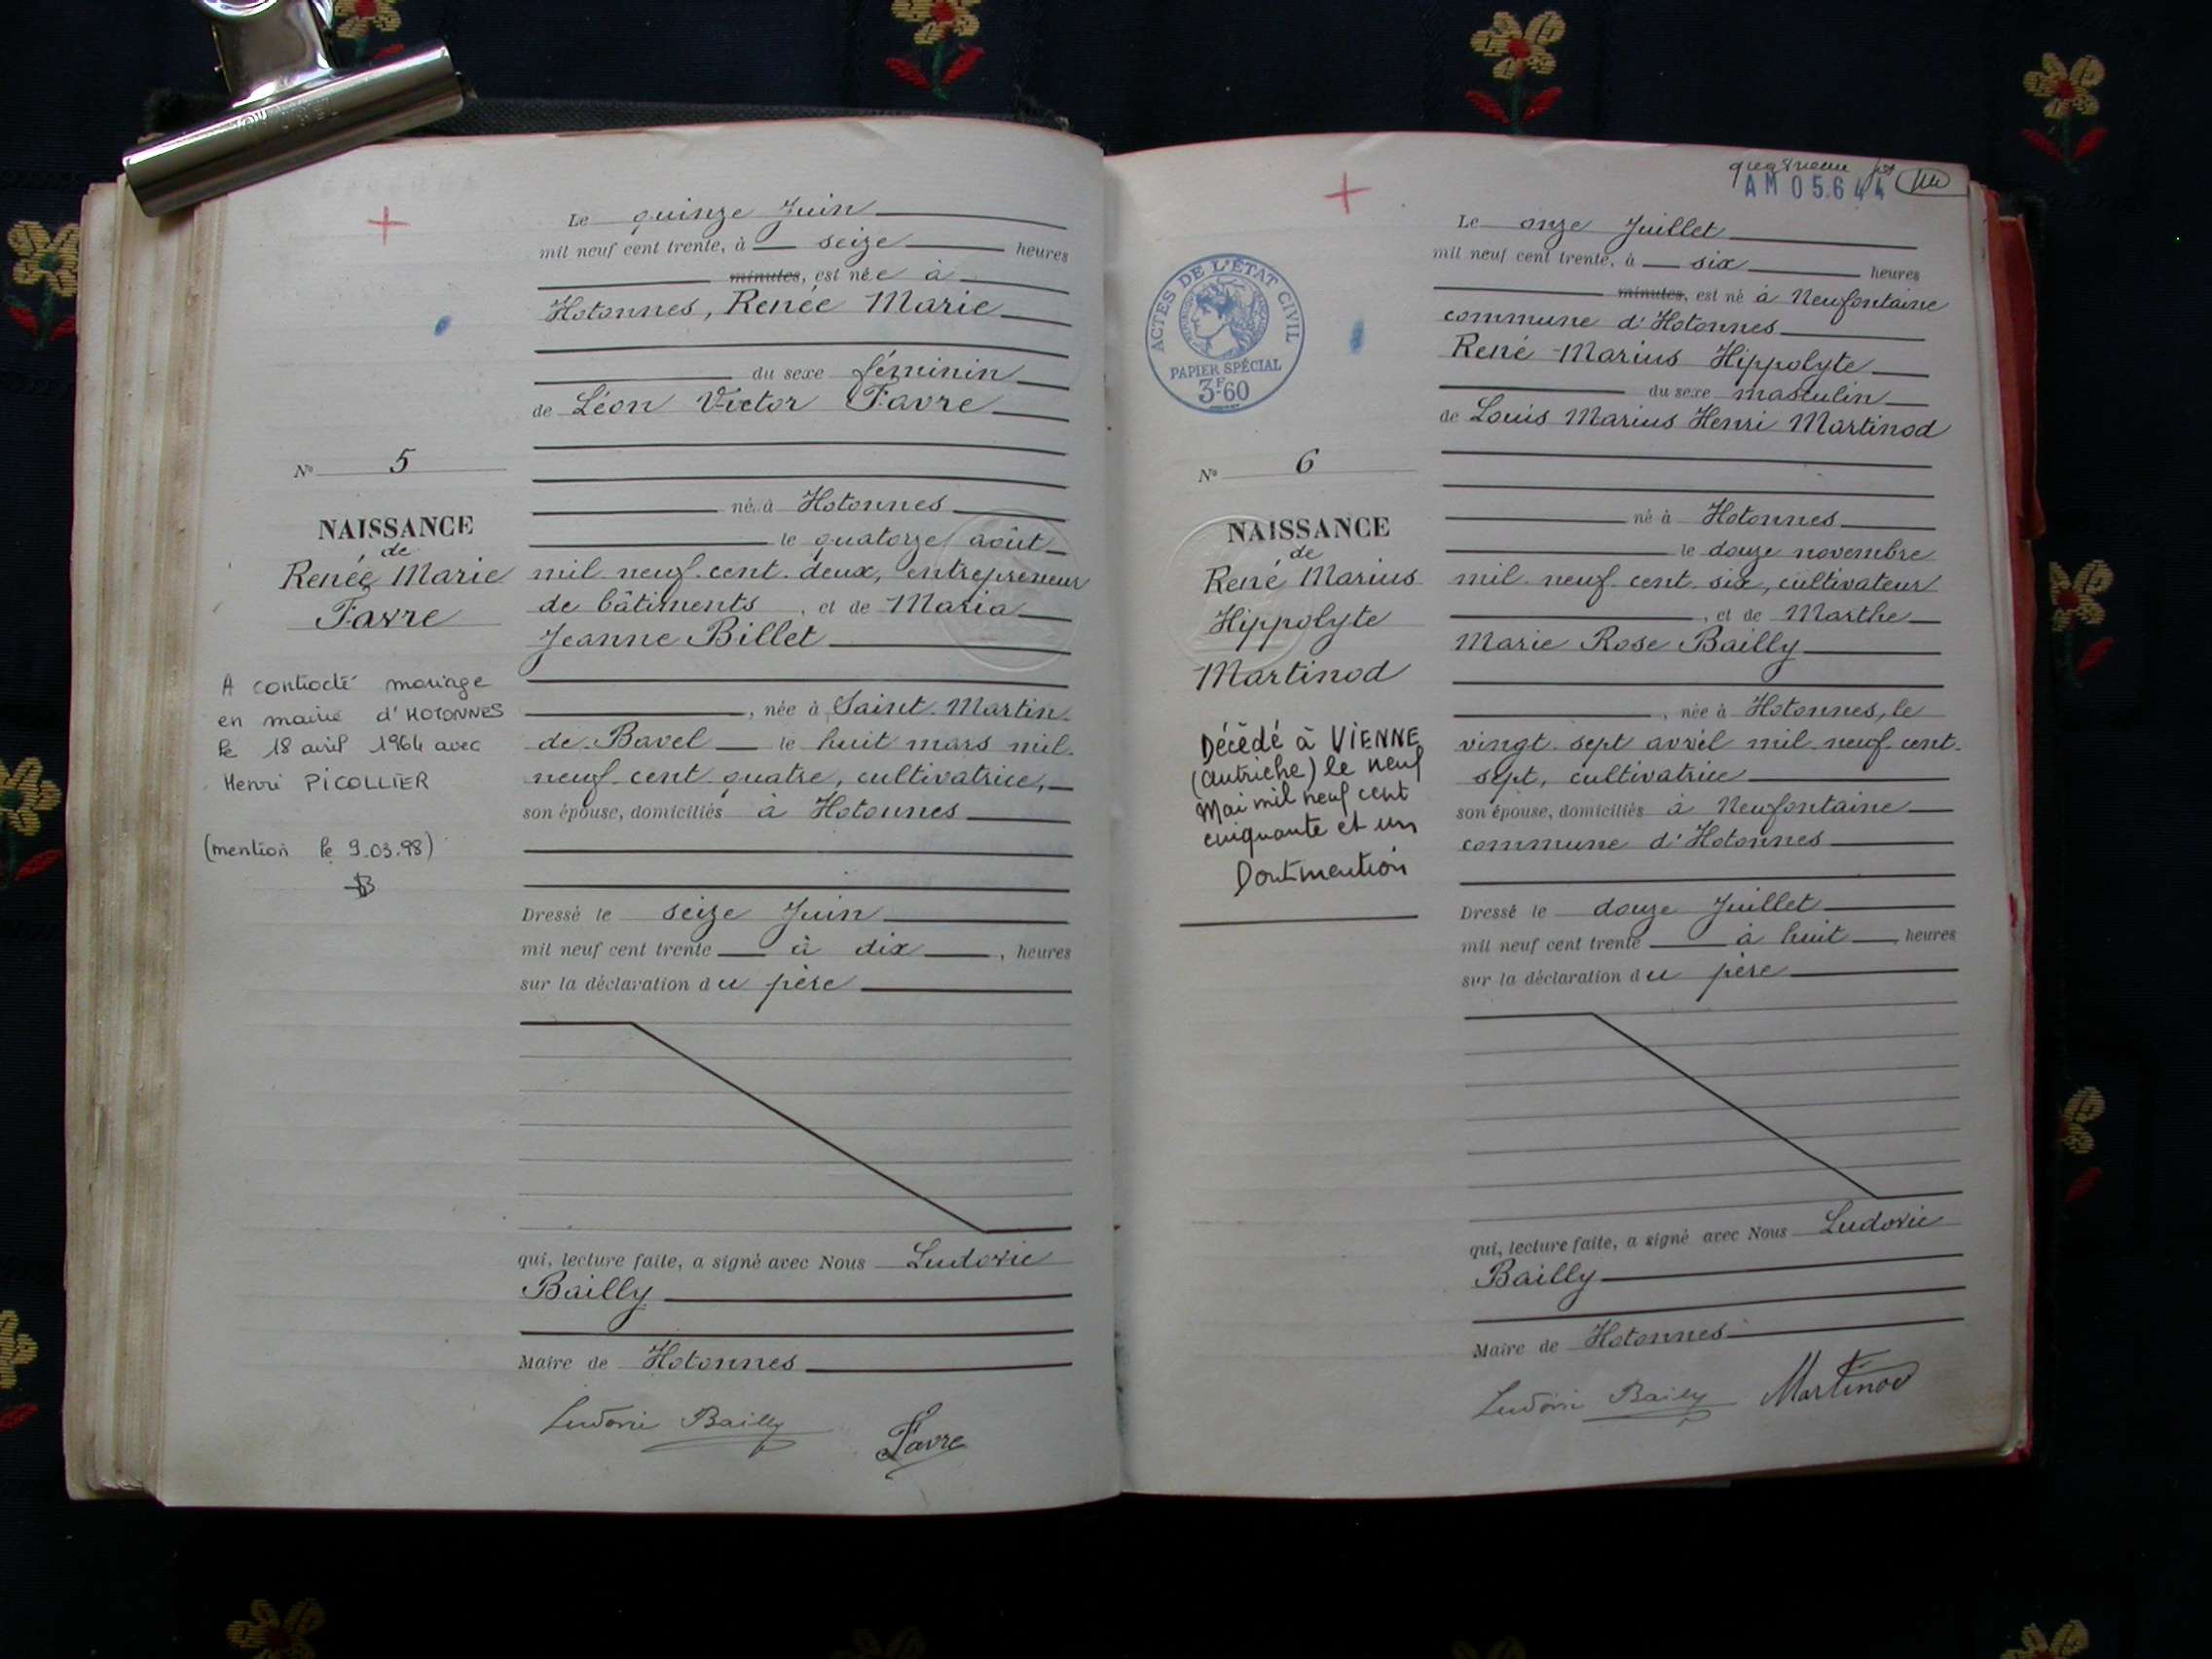 Le quinze Juin
mil neuf cent trente, à seize heures
minutes, est née à
Hotonnes, Renée Marie
du sexe féminin
de Léon Victor Favre
né à Hotonnes
le quatorze août
mil neuf cent deux, entrepreneur
de bâtiments, et de Maria
Jeanne Billet
, née à Saint-Martin-
de-Bavel le huit mars mil-
neuf-cent-quatre, cultivatrice,
son épouse, domiciliés à Hotonnes
Dressé le seize Juin
mil neuf cent trente à dix, heures
sur la déclaration du père
qui, lecture faite, a signé avec Nous Ludovic
Bailly
Maire de Hotonnes
Ludovic Bailly Favre
N° 5
NAISSANCE
de
Renée Marie
Favre
A contracté mariage
en mairie d'HOTONNES
le 18 avril 1964 avec
Henri PICOLLIER
(mention le 9.03.98)
AM 05.644
Le onze Juillet
mil neuf cent trente, à six heures
minutes, est né à Neufontaine
commune d'Hotonnes
René Marius Hippolyte
du sexe masculin
de Louis Marius Henri Martinod
né à Hotonnes
le douze novembre
mil-neuf-cent-six, cultivateur
, et de Marthe
Marie Rose Bailly
, née à Hotonnes, le
vingt-sept avril mil-neuf-cent-
sept, cultivatrice
son épouse, domiciliés à Neufontaine
commune d'Hotonnes
Dressé le douze Juillet
mil neuf cent trente à huit, heures
sur la déclaration du père
qui, lecture faite, a signé avec Nous Ludovic
Bailly
Maire de Hotonnes
Ludovic Bailly Martinod
ACTES DE L'ÉTAT CIVIL
PAPIER SPÉCIAL
3F60
N° 6
NAISSANCE
de
René Marius
Hippolyte
Martinod
Décédé à VIENNE
(Autriche) le neuf
Mai mil neuf cent
cinquante et un
Dont mention